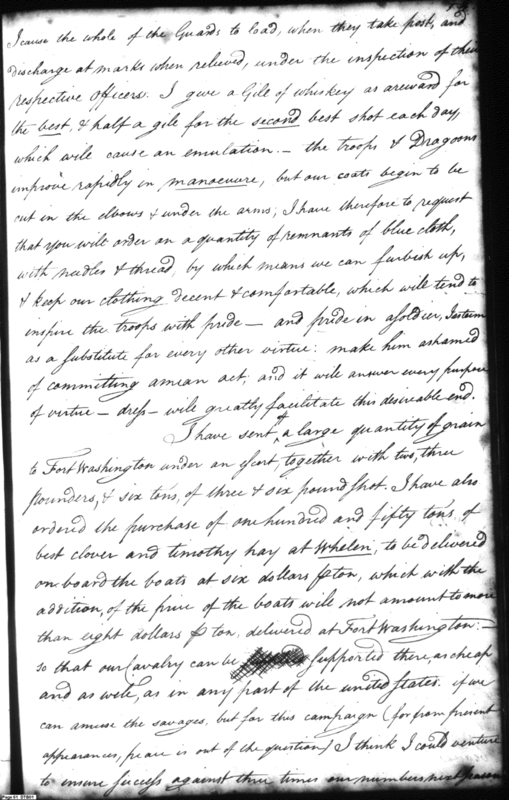 I cause the whole of the Guards to load, when they take post, and
discharge at marks when relieved, under the inspection of their
respective officers. I give a Gile of whiskey as a reward for
the best, & half a gile for the second best shot each day,
which will cause an emulation. — the troops & Dragoons
improve rapidly in manoeuvre, but our coats begin to be
cut in the elbows & under the arms; I have therefore to request
that you will order on a quantity of remnants of blue cloth,
with needles & thread, by which means we can furbish up,
& keep our clothing decent & comfortable, which will tend to
inspire the troops with pride — and pride in a soldier, I esteem
as a substitute for every other virtue: make him ashamed
of committing a mean act, and it will answer every purpose
of virtue — dress — will greatly facilitate this desireable end.
I have sent off, a large quantity of grain
to Fort Washington under an escort, together with two, three
pounders, & six tons, of three & six pound shot. I have also
ordered the purchase of one hundred and fifty tons, of
best clover and timothy hay at Whelen, to be delivered
on board the boats at six dollars ⅌ ton, which with the
addition, of the price of the boats will not amount to more
than eight dollars ⅌ ton, delivered at Fort Washington: —
so that our Cavalry can be supported there, as cheap
and as well, as in any part of the united States. if we
can amuse the savages, but for this campaign (for from present
appearances, peace is out of the question) I think I could venture
to insure success against three times our numbers next season
Page 61 of 891